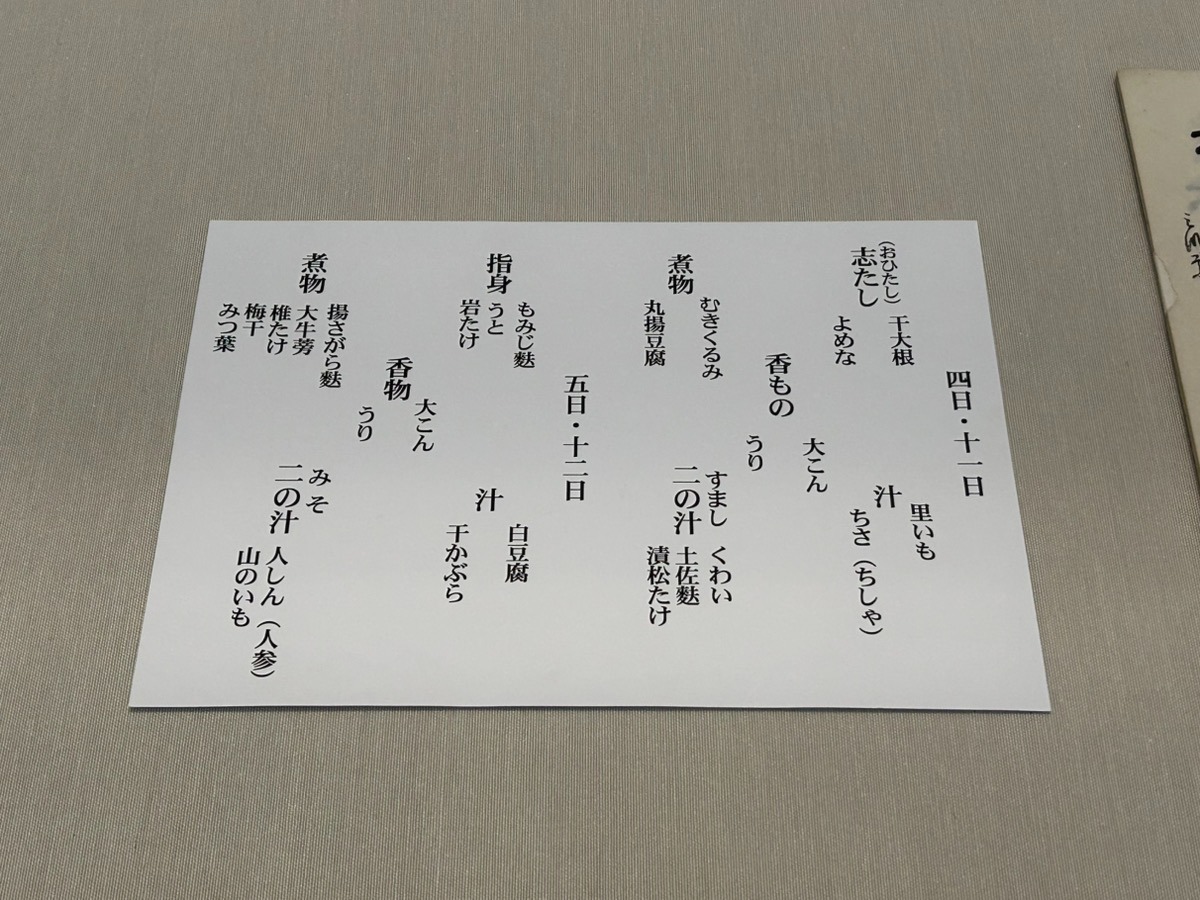 四日・十一日
志たし(おひたし)
干大根
よめな
汁
里いも
ちさ(ちしゃ)
香もの
大こん
うり
煮物
むきくるみ
丸揚豆腐
二の汁
すまし
くわい
土佐麩
漬松たけ
五日・十二日
指身
もみじ麩
うと
岩たけ
汁
白豆腐
干かぶら
香物
大こん
うり
煮物
揚さがら麩
大牛蒡
椎たけ
梅干
みつ葉
二の汁
みそ
人しん(人参)
山のいも